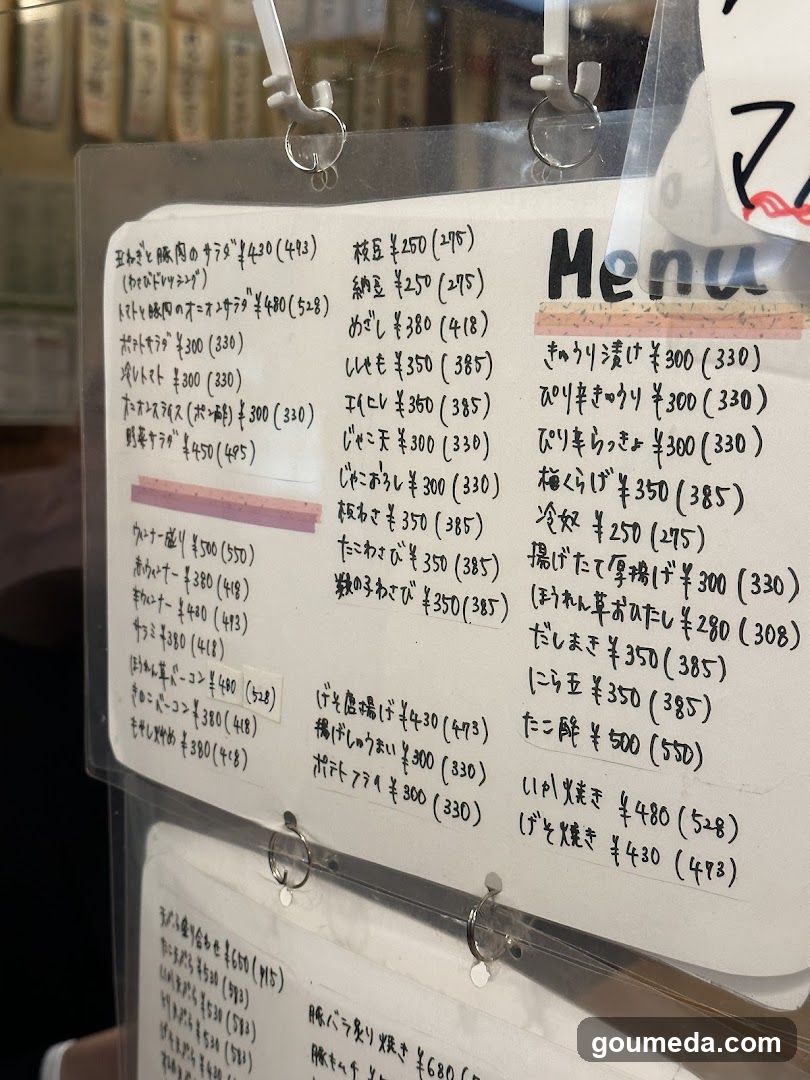 Menu
きゅうり漬け ¥300(330)
ぴり辛きゅうり ¥300(330)
ぴり辛らっきょ ¥300(330)
梅くらげ ¥350(385)
冷奴 ¥250(275)
揚げたて厚揚げ ¥300(330)
ほうれん草おひたし ¥280(308)
だしまき ¥350(385)
にら玉 ¥350(385)
たこ酢 ¥500(550)
いか焼き ¥480(528)
げそ焼き ¥430(473)
枝豆 ¥250(275)
納豆 ¥250(275)
めざし ¥380(418)
ししゃも ¥350(385)
エイヒレ ¥350(385)
じゃこ天 ¥300(330)
じゃこおろし ¥300(330)
板わさ ¥350(385)
たこわさび ¥350(385)
数の子わさび ¥350(385)
げそ唐揚げ ¥430(473)
揚げしゅうまい ¥300(330)
ポテトフライ ¥300(330)
玉ねぎと豚肉のサラダ ¥430(473)
(わさびドレッシング)
トマトと豚肉のオニオンサラダ ¥480(528)
ポテトサラダ ¥300(330)
冷しトマト ¥300(330)
オニオンスライス(ポン酢) ¥300(330)
野菜サラダ ¥450(495)
ウィンナー盛り ¥500(550)
赤ウィンナー ¥380(418)
辛ウィンナー ¥430(473)
サラミ ¥380(418)
ほうれん草ベーコン ¥480(528)
きのこベーコン ¥380(418)
もやし炒め ¥380(418)
天ぷら盛り合わせ ¥650(715)
たこ天ぷら ¥530(583)
いか天ぷら ¥530(583)
とり天ぷら ¥530(583)
げそ天ぷら ¥430
豚バラ炙り焼き ¥680
豚キムチ
goumeda.com